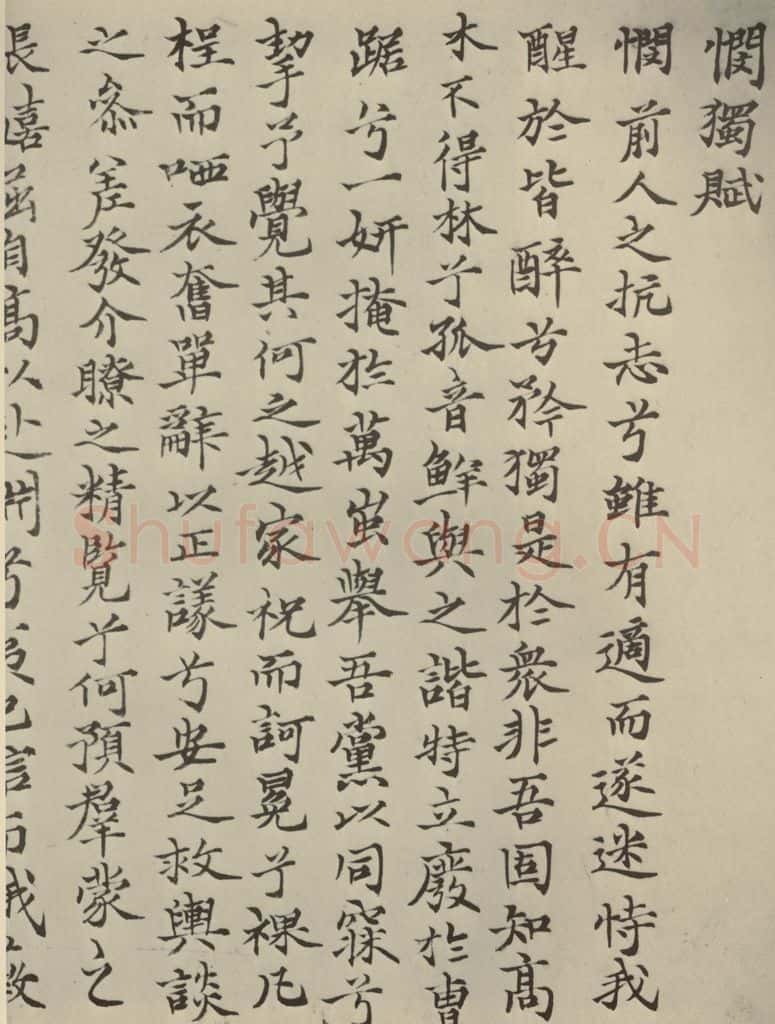 憫獨賦
憫前人之抗志兮雖有適而遂迷恃我
醒於皆醉兮矜獨是於衆非吾固知高
木不得林兮孤音鮮與之諧特立廢於曹
踞兮一妍掩於萬蚩舉吾黨以同寐兮
挈予覺其何之越家祝而訶冕兮裸凡
裎而哂衣奮單辭以正議兮安足救輿談
之叅差發介瞭之精覽兮何預羣蒙之
長嘻茲自高以
Shufawang.CN